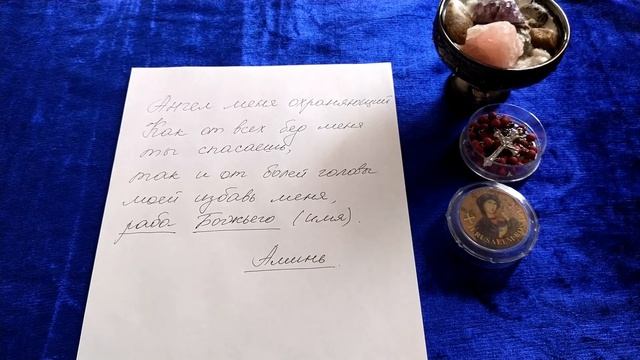 Ангел меня охраняющий
Как от всех бед меня
ты спасаешь,
так и от болей головы
моей избавь меня,
раба Божьего (имя).
Аминь.
JERUSALEM